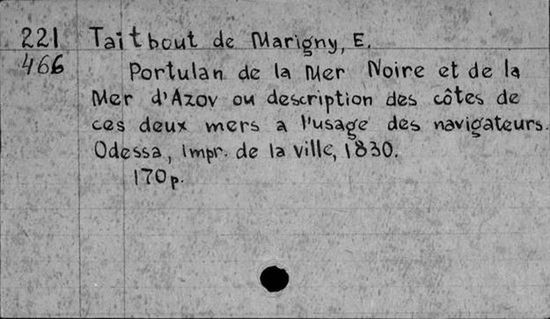 221 Taitbout de Marigny, E.
466 Portulan de la Mer Noire et de la
Mer d'Azov ou description des côtes de
ces deux mers a l'usage des navigateurs.
Odessa, Impr. de la ville, 1830.
170 p.